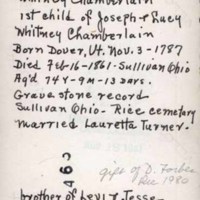 Whitney Chamberlain
1st child of Joseph & Lucy
Whitney Chamberlain
Born Dover, Vt. Nov. 3-1787
Died Feb-16-1861-Sullivan Ohio
Ag'd 74Y-9M-13 Days.
Grave stone record-
Sullivan Ohio-Rice cemetary
Married Lauretta Turner.
gift of D. Forbes
Dec 1980
brother of Levi & Jesse